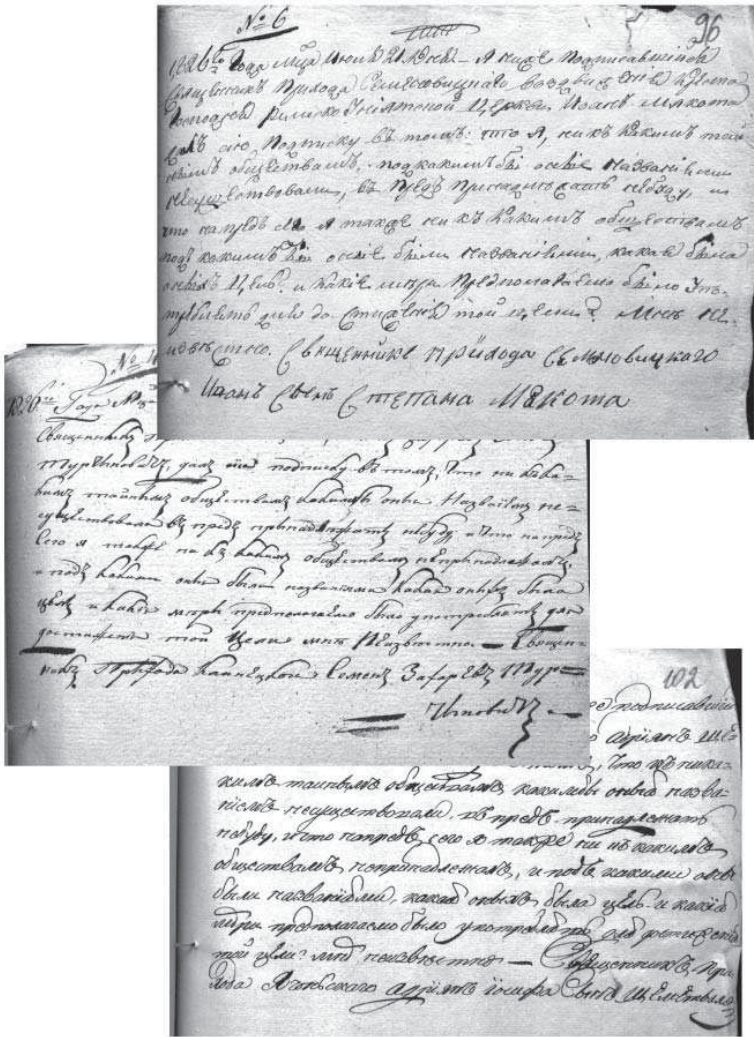 № 6
96
1826го Года мца Июня 21 дня – Я ниже подписавшийся
Священник Прихода Воздвижения Креста
Господня Римско Униатской Церкви Иоанъ Макота
далъ сию Подписку въ томъ: что я, ни къ какимъ тай
нымъ обществамъ, подкакимъ бы оные названіемъ
несуществовали, въ предъ принадлежать небуду, и
что напредъ сего я также ни къ какимъ обществамъ
подъ какимъ бы оные были названіемъ, какая была
оныхъ Цель? и какіе меры предполагаемо было упо-
треблять для до стиженія той цели? Мне не
известно. Священникъ прихода Семновицкаго
Иванъ Сынъ Степана Макота
№
1826го Года
Священникъ
Туркиновичъ, далъ сію подписку въ томъ, что ни къ ка-
кимъ тайнымъ обществамъ какимъ бы оны названіемъ не=
существовали въ предъ принадлежать небуду и что напредъ
сего я также ни къ какимъ обществамъ непринадлежалъ,
и подъ какими оны были названіями какая оныхъ была
цель и какіе меры предполагаемо было употреблять для
достиженія той Цели мне Неизвестно — Священ-
никъ Прихода Семенъ Захаревъ Тур=
киновичъ —
102
подписавшій
Адріанъ Ше
что къ ника-
кимъ тайнымъ обществамъ какимбы оные назва-
ніемъ несуществовали, въ предъ принадлежать
небуду, и что напредъ сего я также ни къ какимъ
обществамъ непринадлежалъ, и подъ какими оны
были названіями, какая оныхъ была цель и какіе
меры предполагаемо было употреблять для достиженія
той цели? мне неизвестно — Священникъ При
хода Адріанъ Іосифа Сынъ